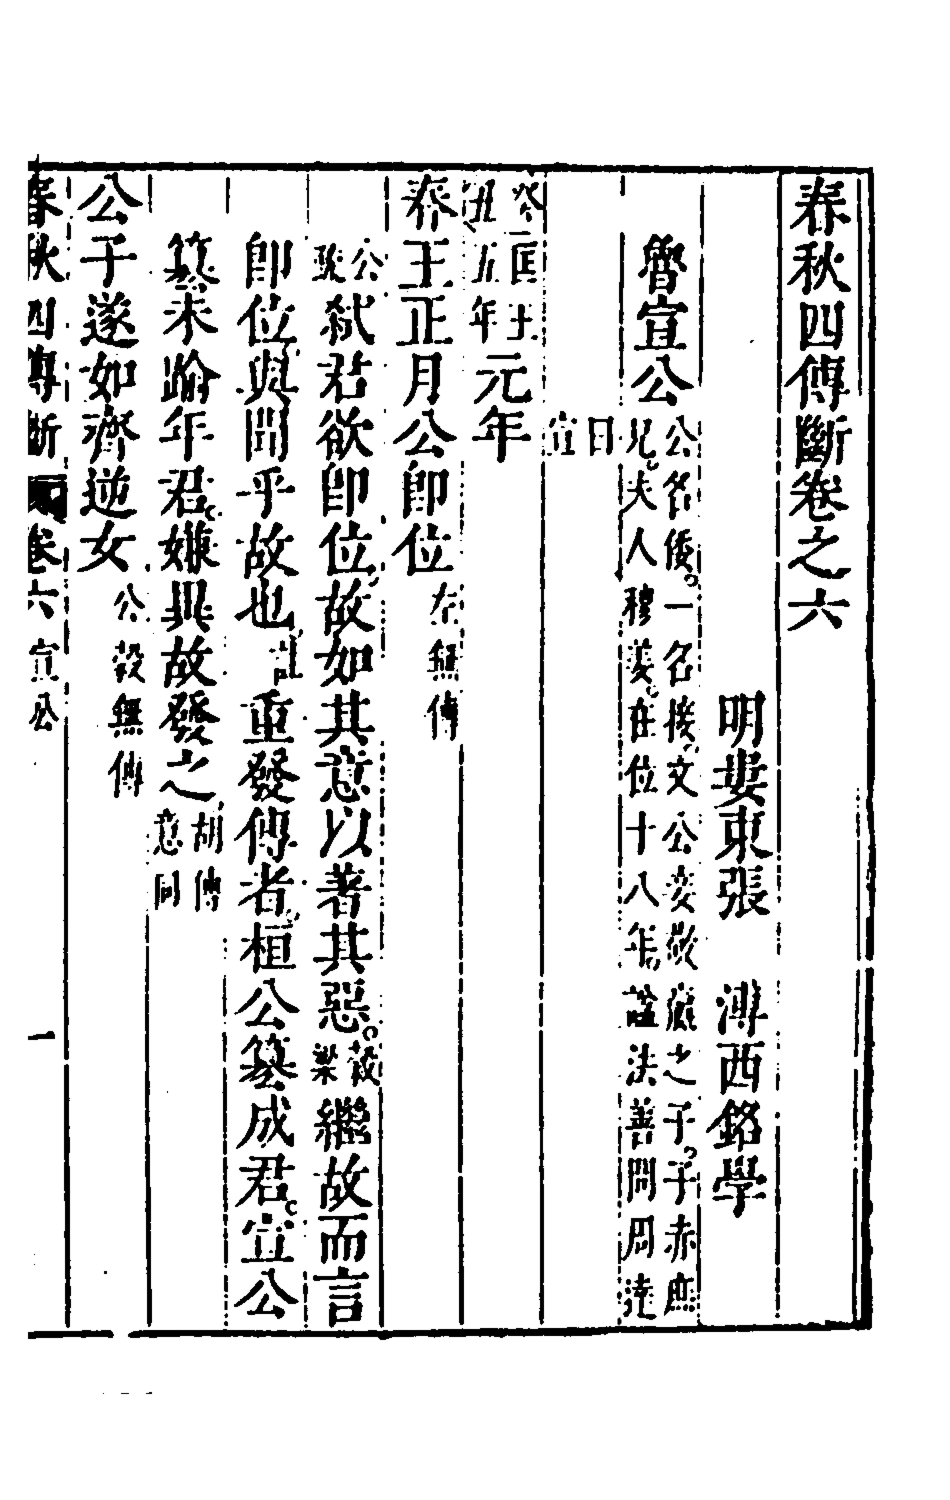 春秋四傳斷卷之六
明婁東張　溥西銘學
魯宣公 公名倭一名接文公妾敬嬴之子子赤庶
兄夫人穆姜在位十八年諡法善問周達
曰
宣
癸匡王
丑五年元年
春王正月公卽位 左無傳
公
梁弒君欲卽位故如其意以著其惡 穀
梁繼故而言
卽位與聞乎故也 註重發傳者桓公篡成君宣公
篡未踰年君嫌異故發之 胡傳
意同
公子遂如齊逆女 公穀無傳
春秋四傳斷 卷六 宣公 一